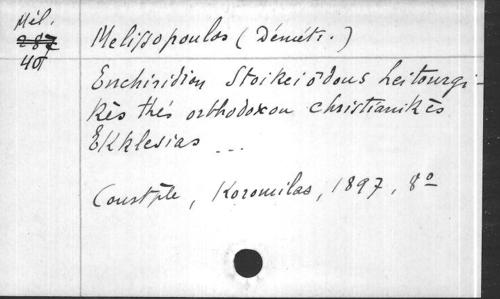 Mél.
287
407
Melissopoulos (Démétr.)
Enchiridion Stoikeiōdous leitourgi-
kès thés orthodoxou christianikès
Ekklesias ...
Constple, Koromilas, 1897, 8º